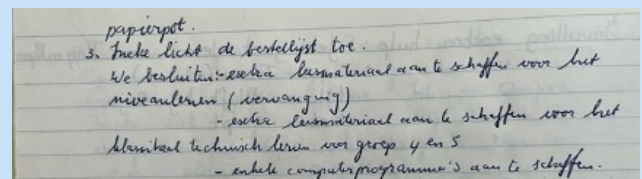 papierpot.
3. Ineke licht de bestellijst toe.
We besluiten: - extra leesmateriaal aan te schaffen voor het
niveaulezen (vervanging)
- extra leesmateriaal aan te schaffen voor het
klassikaal technisch lezen voor groep 4 en 5
- enkele computerprogramma's aan te schaffen.